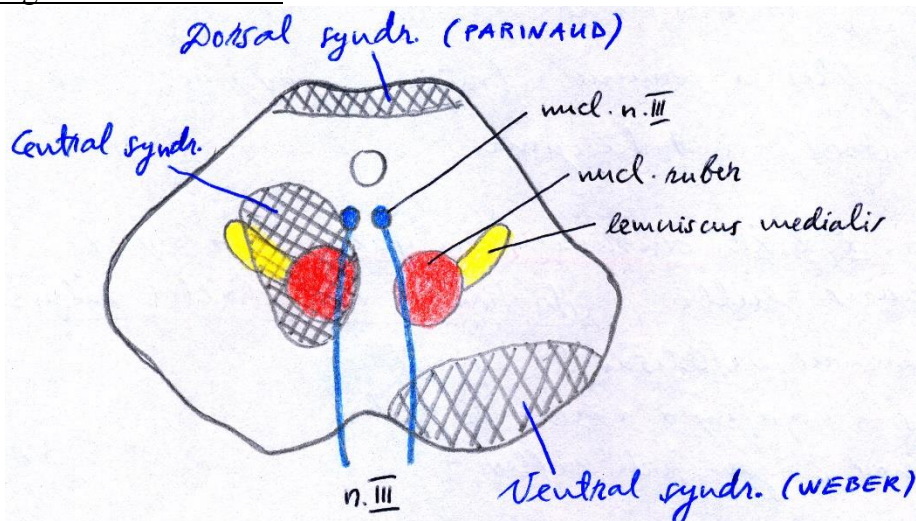 Dorsal syndr. (PARINAUD)
Central syndr.
nucl. n. III
nucl. ruber
lemniscus medialis
n. III
Ventral syndr. (WEBER)